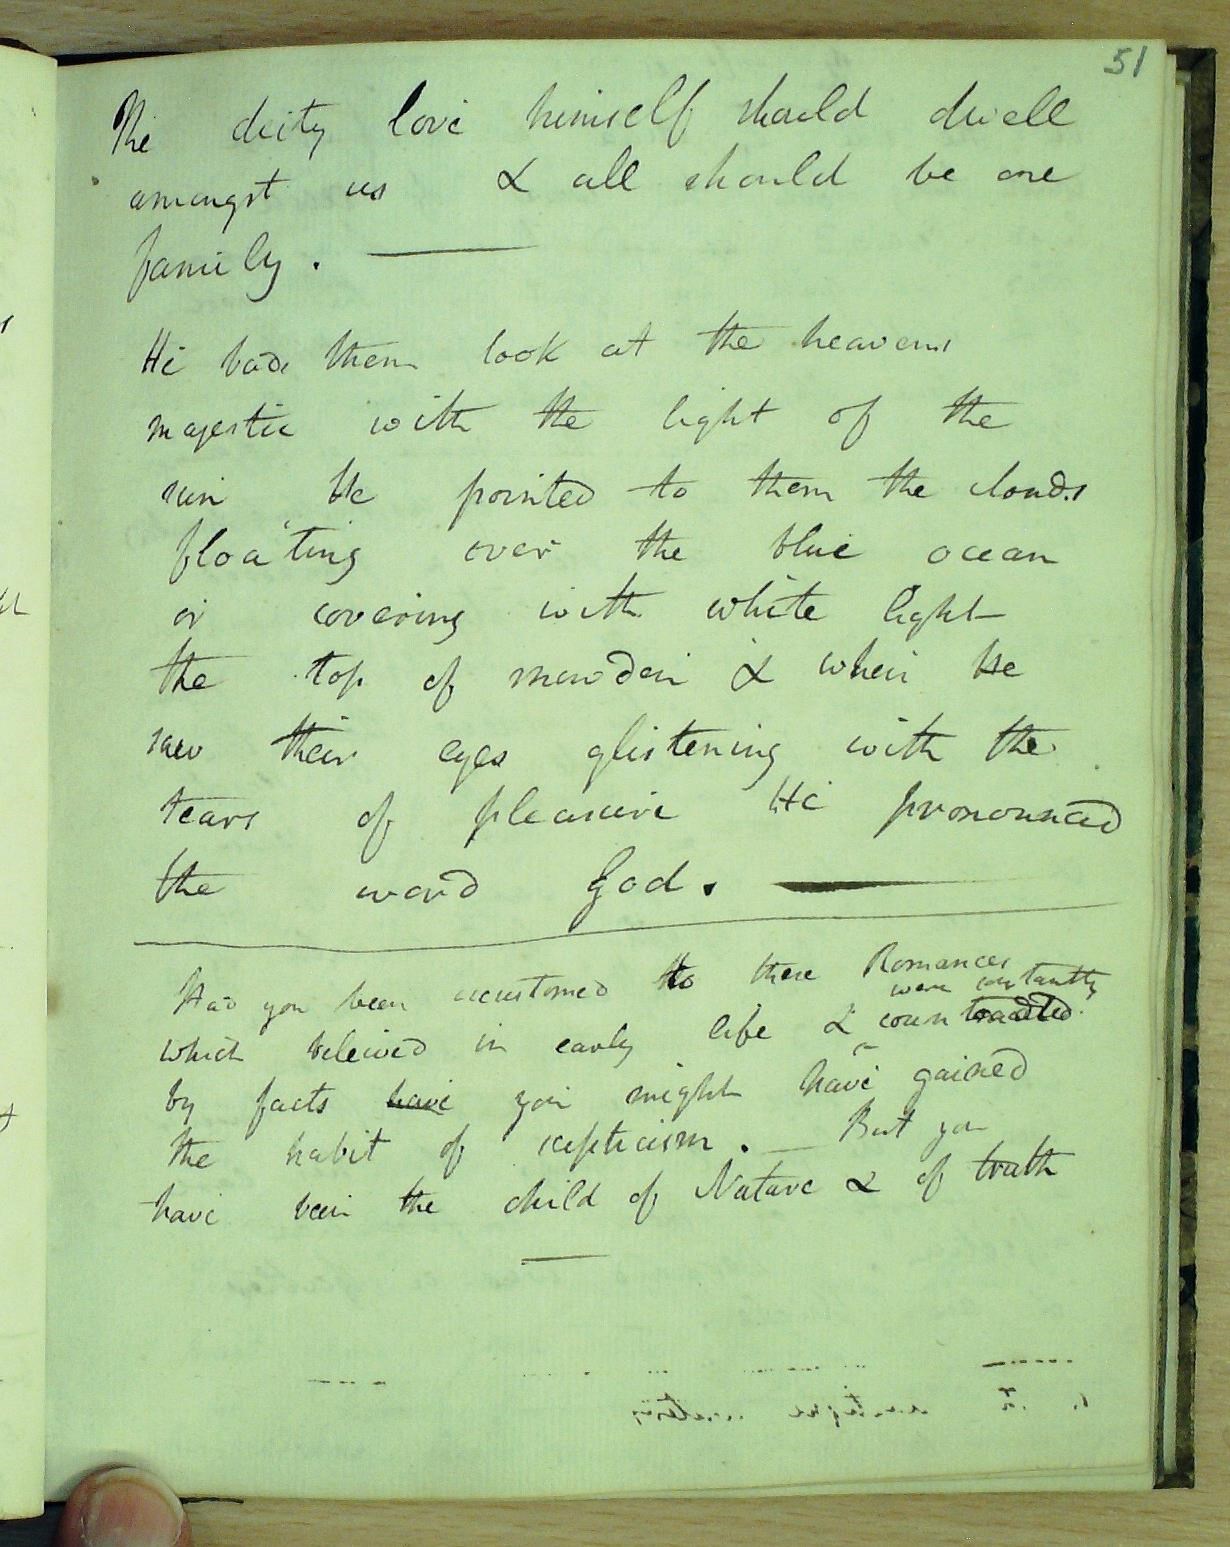 51
The deity love himself should dwell
amongst us & all should be one
family. —
He bade them look at the heavens
majestic with the light of the
sun He pointed to them the clouds
floating over the blue ocean
or covering with white light
the top of snowdon & when He
saw their eyes glistening with the
tears of pleasure He pronounced
the word God. —
Had you been accustomed to these Romances
were constantly
which beleived in early life & coun
by facts have you might have gained
the habit of scepticism. — But you
have been the child of Nature & of truth